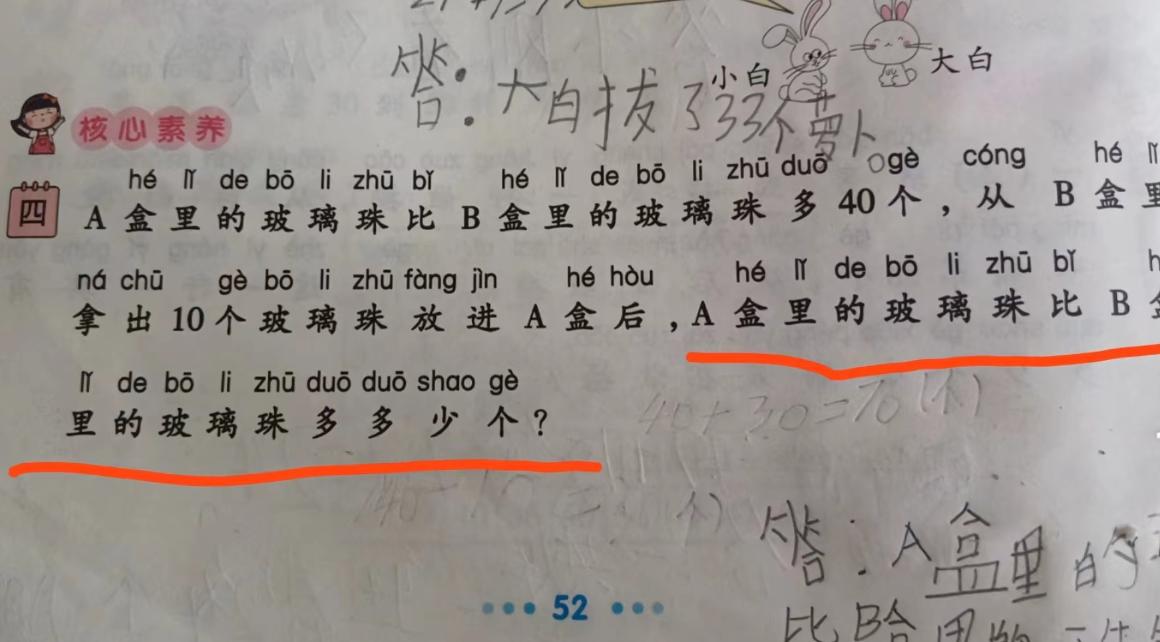 答：大白拔了33个萝卜。
小白
大白
核心素养
hé lǐ de bō li zhū bǐ hé lǐ de bō li zhū duō gè cóng hé lǐ
四 A盒里的玻璃珠比B盒里的玻璃珠多40个，从B盒里
ná chū gè bō li zhū fàng jìn hé hòu hé lǐ de bō li zhū bǐ h
拿出10个玻璃珠放进A盒后，A盒里的玻璃珠比B盒
lǐ de bō li zhū duō duō shao gè
里的玻璃珠多多少个？
40+30=70(个)
答：A盒里的
比B盒里的
52